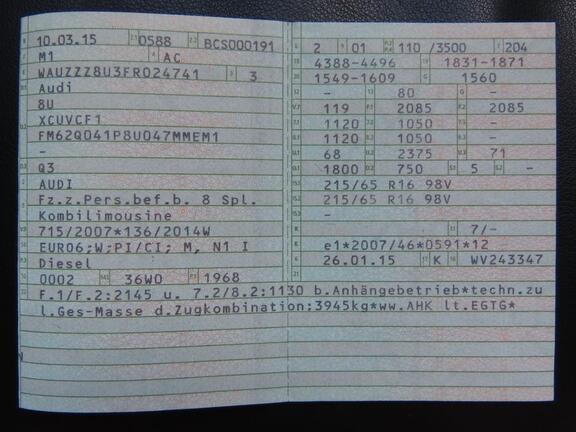 10.03.15 0588 BCS000191
M1 AC
WAUZZZ8U3FR024741 3
Audi
8U
XCUVCF1
FM62Q041P8U047MMEM1
-
Q3
AUDI
Fz.z.Pers.bef.b. 8 Spl.
Kombilimousine
715/2007*136/2014W
EURO6;W;PI/CI; M, N1 I
Diesel
0002 36W0 1968
2 01 110 /3500 204
4388-4496 1831-1871
1549-1609 1560
- 80 -
119 2085 2085
1120 1050 -
1120 1050 -
68 2375 71
1800 750 5 -
215/65 R16 98V
215/65 R16 98V
-
7/-
e1*2007/46*0591*12
26.01.15 K WV243347
F.1/F.2:2145 u. 7.2/8.2:1130 b.Anhängebetrieb*techn.zu
l.Ges-Masse d.Zugkombination:3945kg*ww.AHK lt.EGTG*